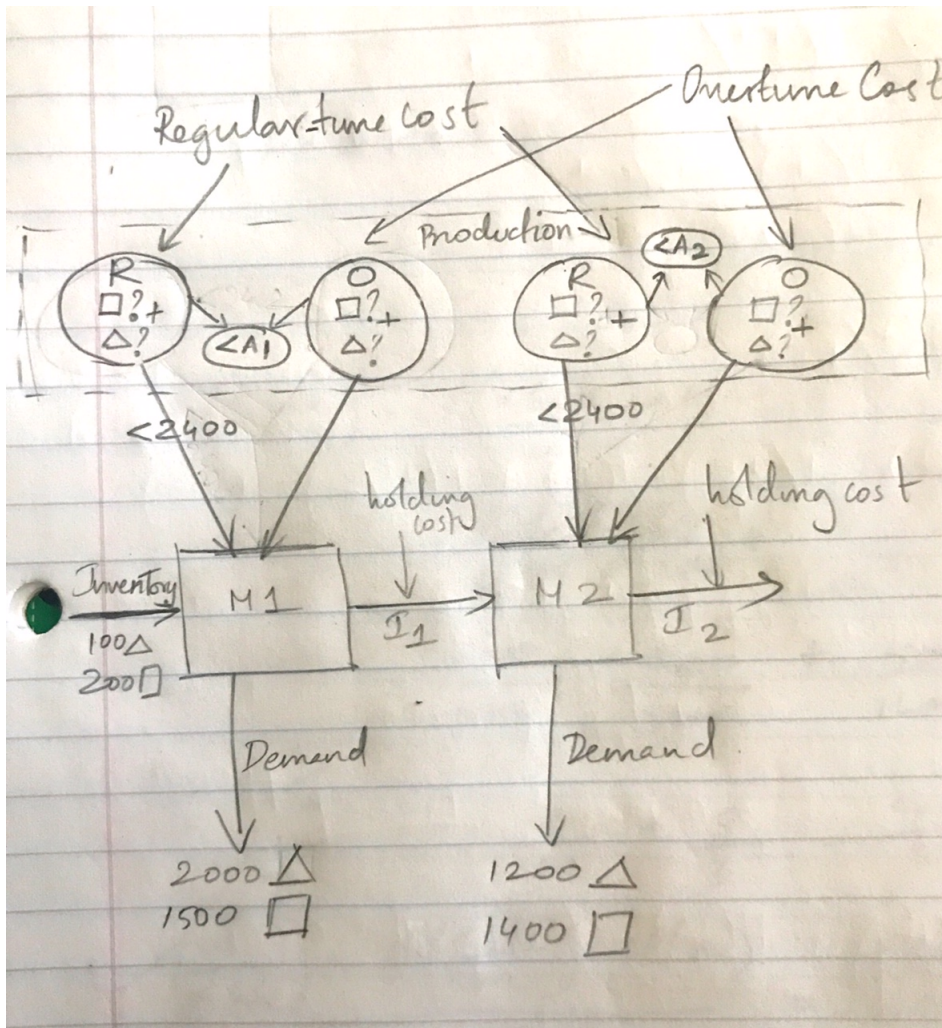 Overtime Cost
Regular-time cost
Production
<A2
R
□?+
△?
O
□?+
△?
<A1
R
□?+
△?
O
□?+
△?
<2400
<2400
holding
cost
holding cost
Inventory
100△
200□
M1
I1
M2
I2
Demand
Demand
2000 △
1500 □
1200 △
1400 □